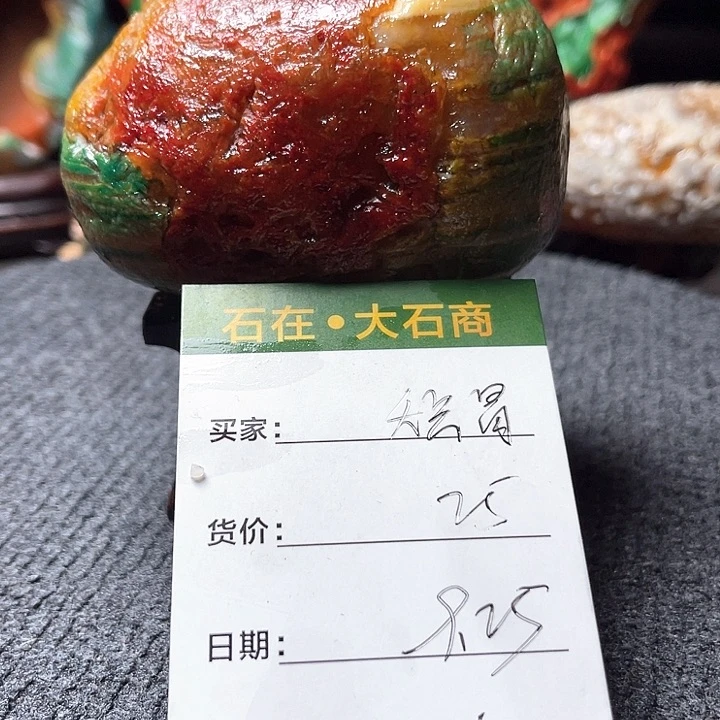 石在•大石商
买家：
货价：25
日期：8.25